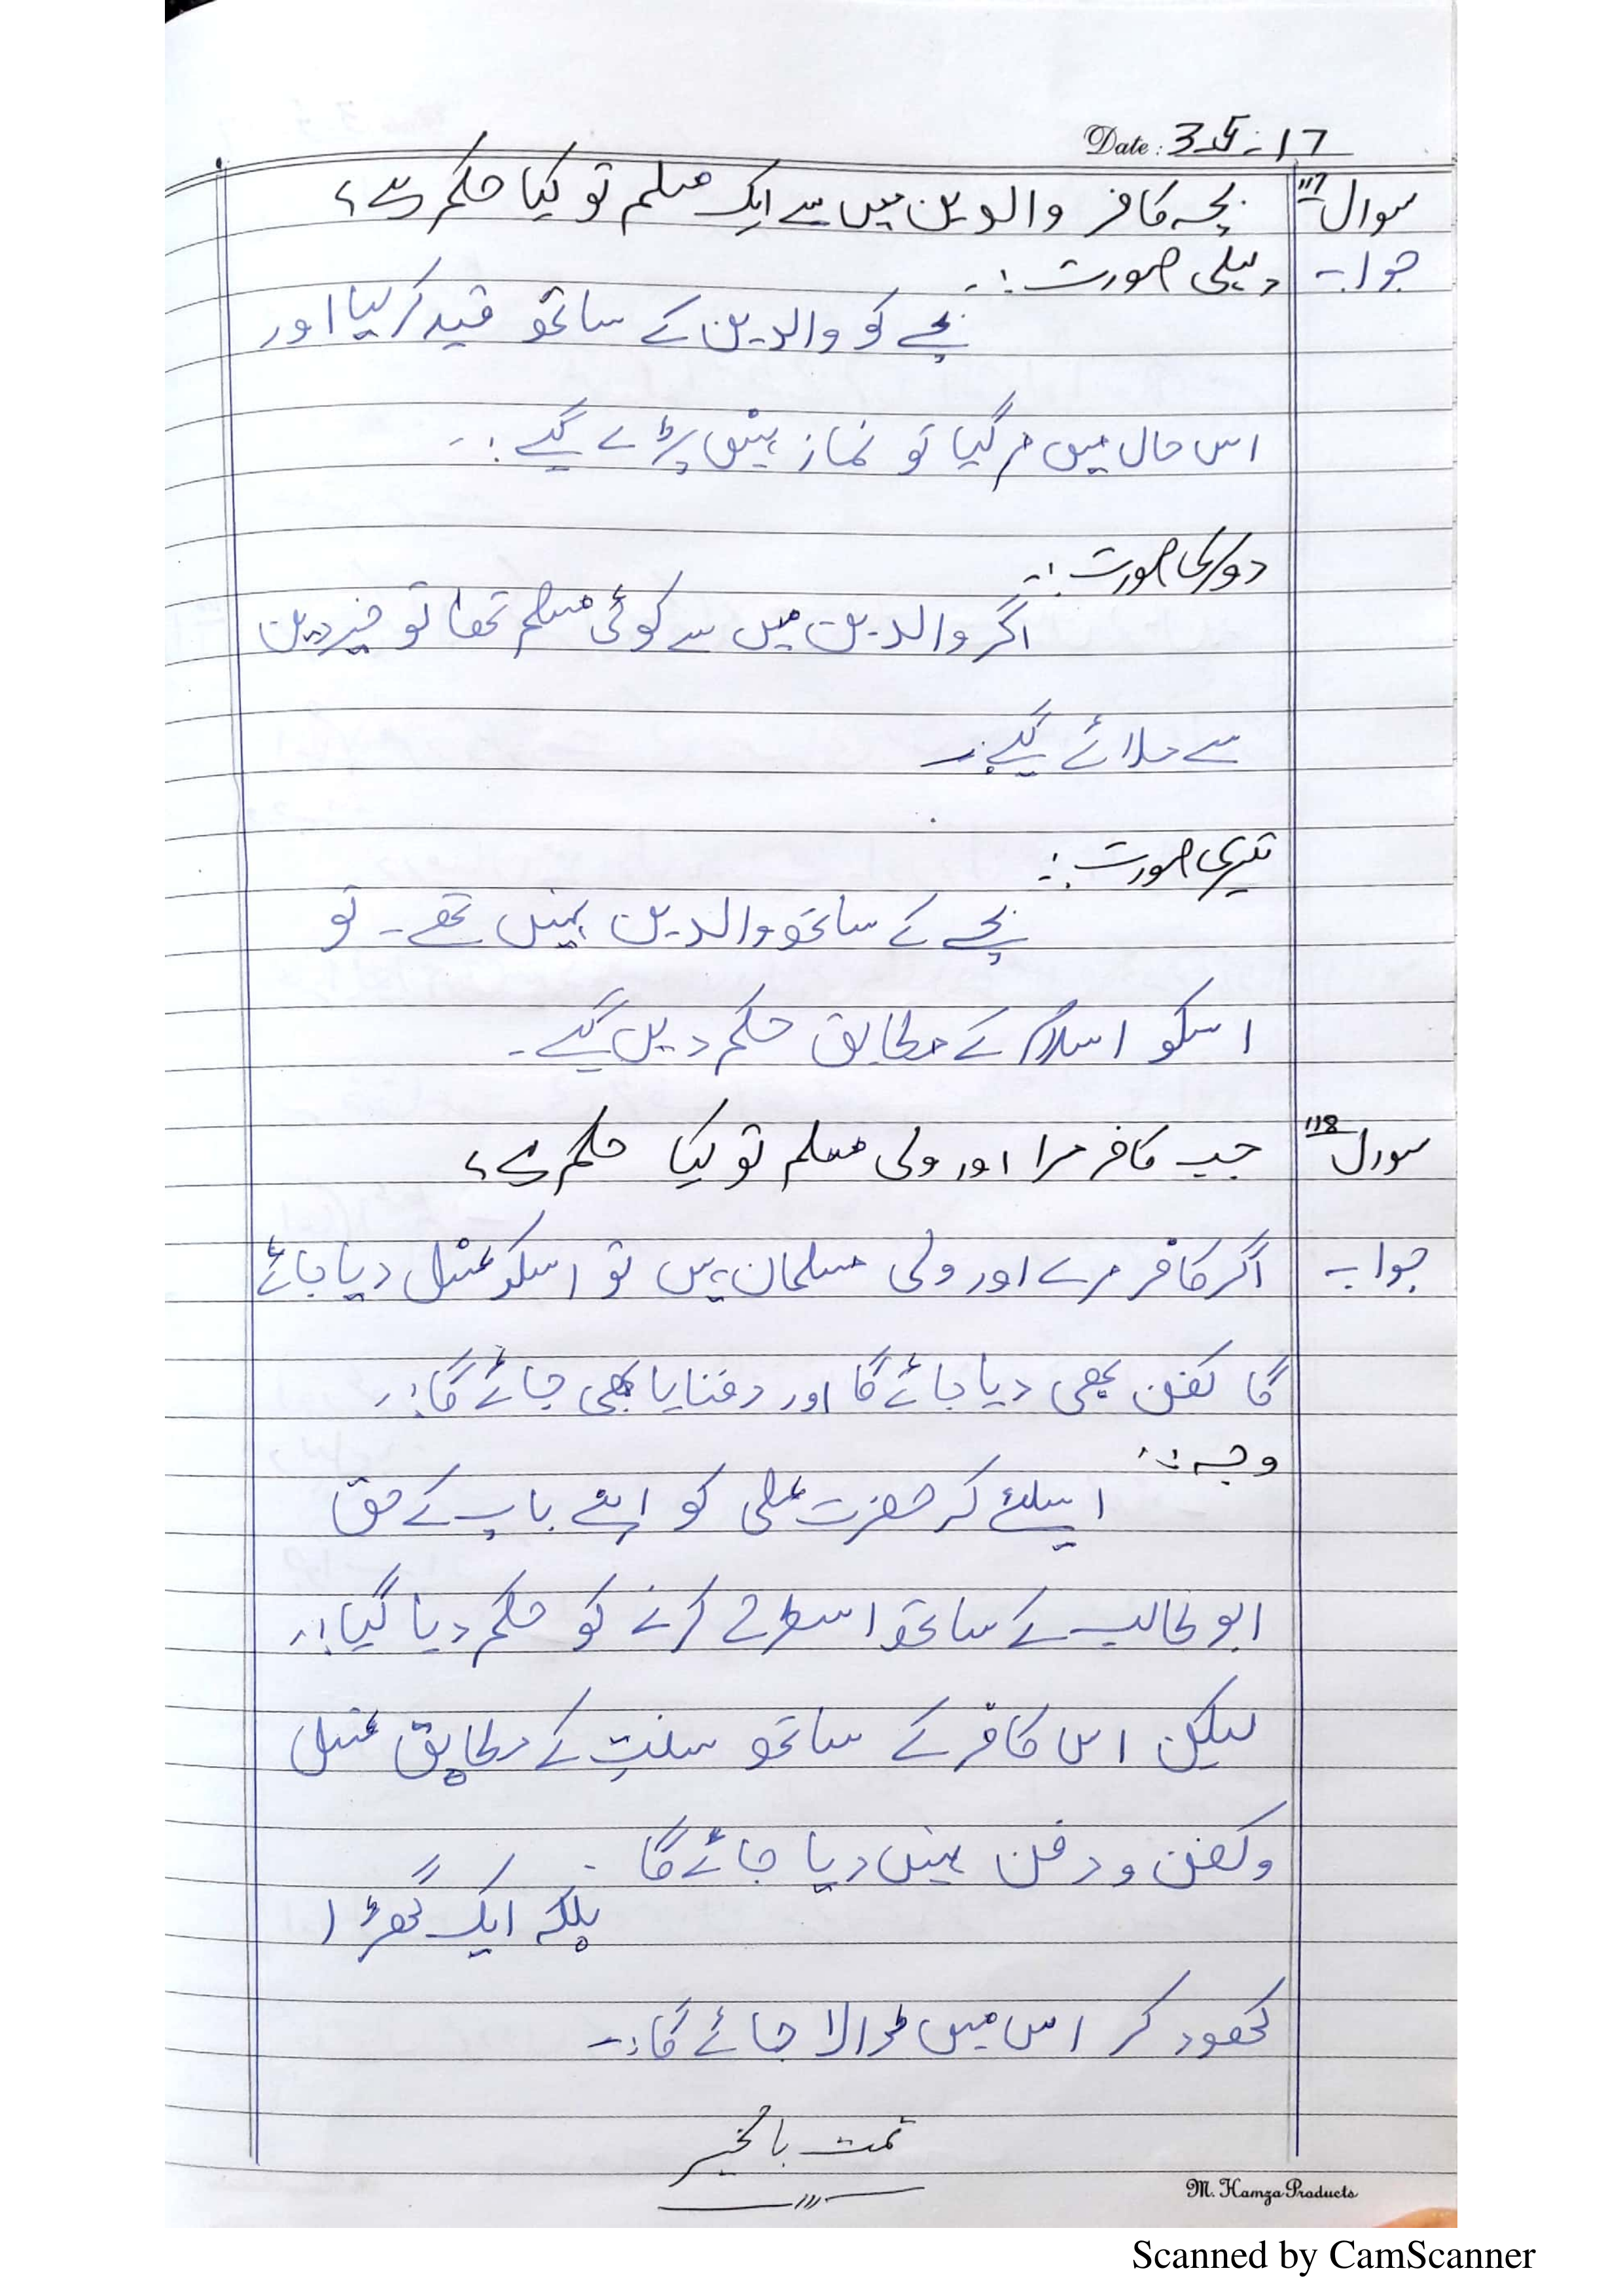 Date: 3-5-17
سوال 117 بچہ کافر والدین میں سے ایک مسلم تو کیا حکم ہے؟
جواب پہلی صورت :-
بچے کو والدین کے ساتھ قید کر لیا اور
اس حال میں مر گیا تو نماز نہیں پڑے گے :-
دوسری صورت :-
اگر والدین میں سے کوئی مسلم تھا تو خیر دین
سے ملائے گے :-
تیسری صورت :-
بچے کے ساتھ والدین نہیں تھے - تو
اسکو اسلام کے مطابق حکم دیں گے -
سوال 118 جب کافر مرا اور ولی مسلم تو کیا حکم ہے؟
جواب اگر کافر مرے اور ولی مسلمان ہیں تو اسکو غسل دیا جائے
گا کفن بھی دیا جائے گا اور دفنایا بھی جائے گا :-
وجہ :-
اسلئے کہ حضرت علی کو اپنے باپ کے حق
ابو طالب کے ساتھ اسطرح کرنے کو حکم دیا گیا :-
لیکن اس کافر کے ساتھ سنت کے مطابق غسل
وکفن و دفن نہیں دیا جائے گا -
بلکہ ایک گھڑا
کھود کر اس میں ڈالا جائے گا :-
تمت بالخیر
M. Hamza Products
Scanned by CamScanner